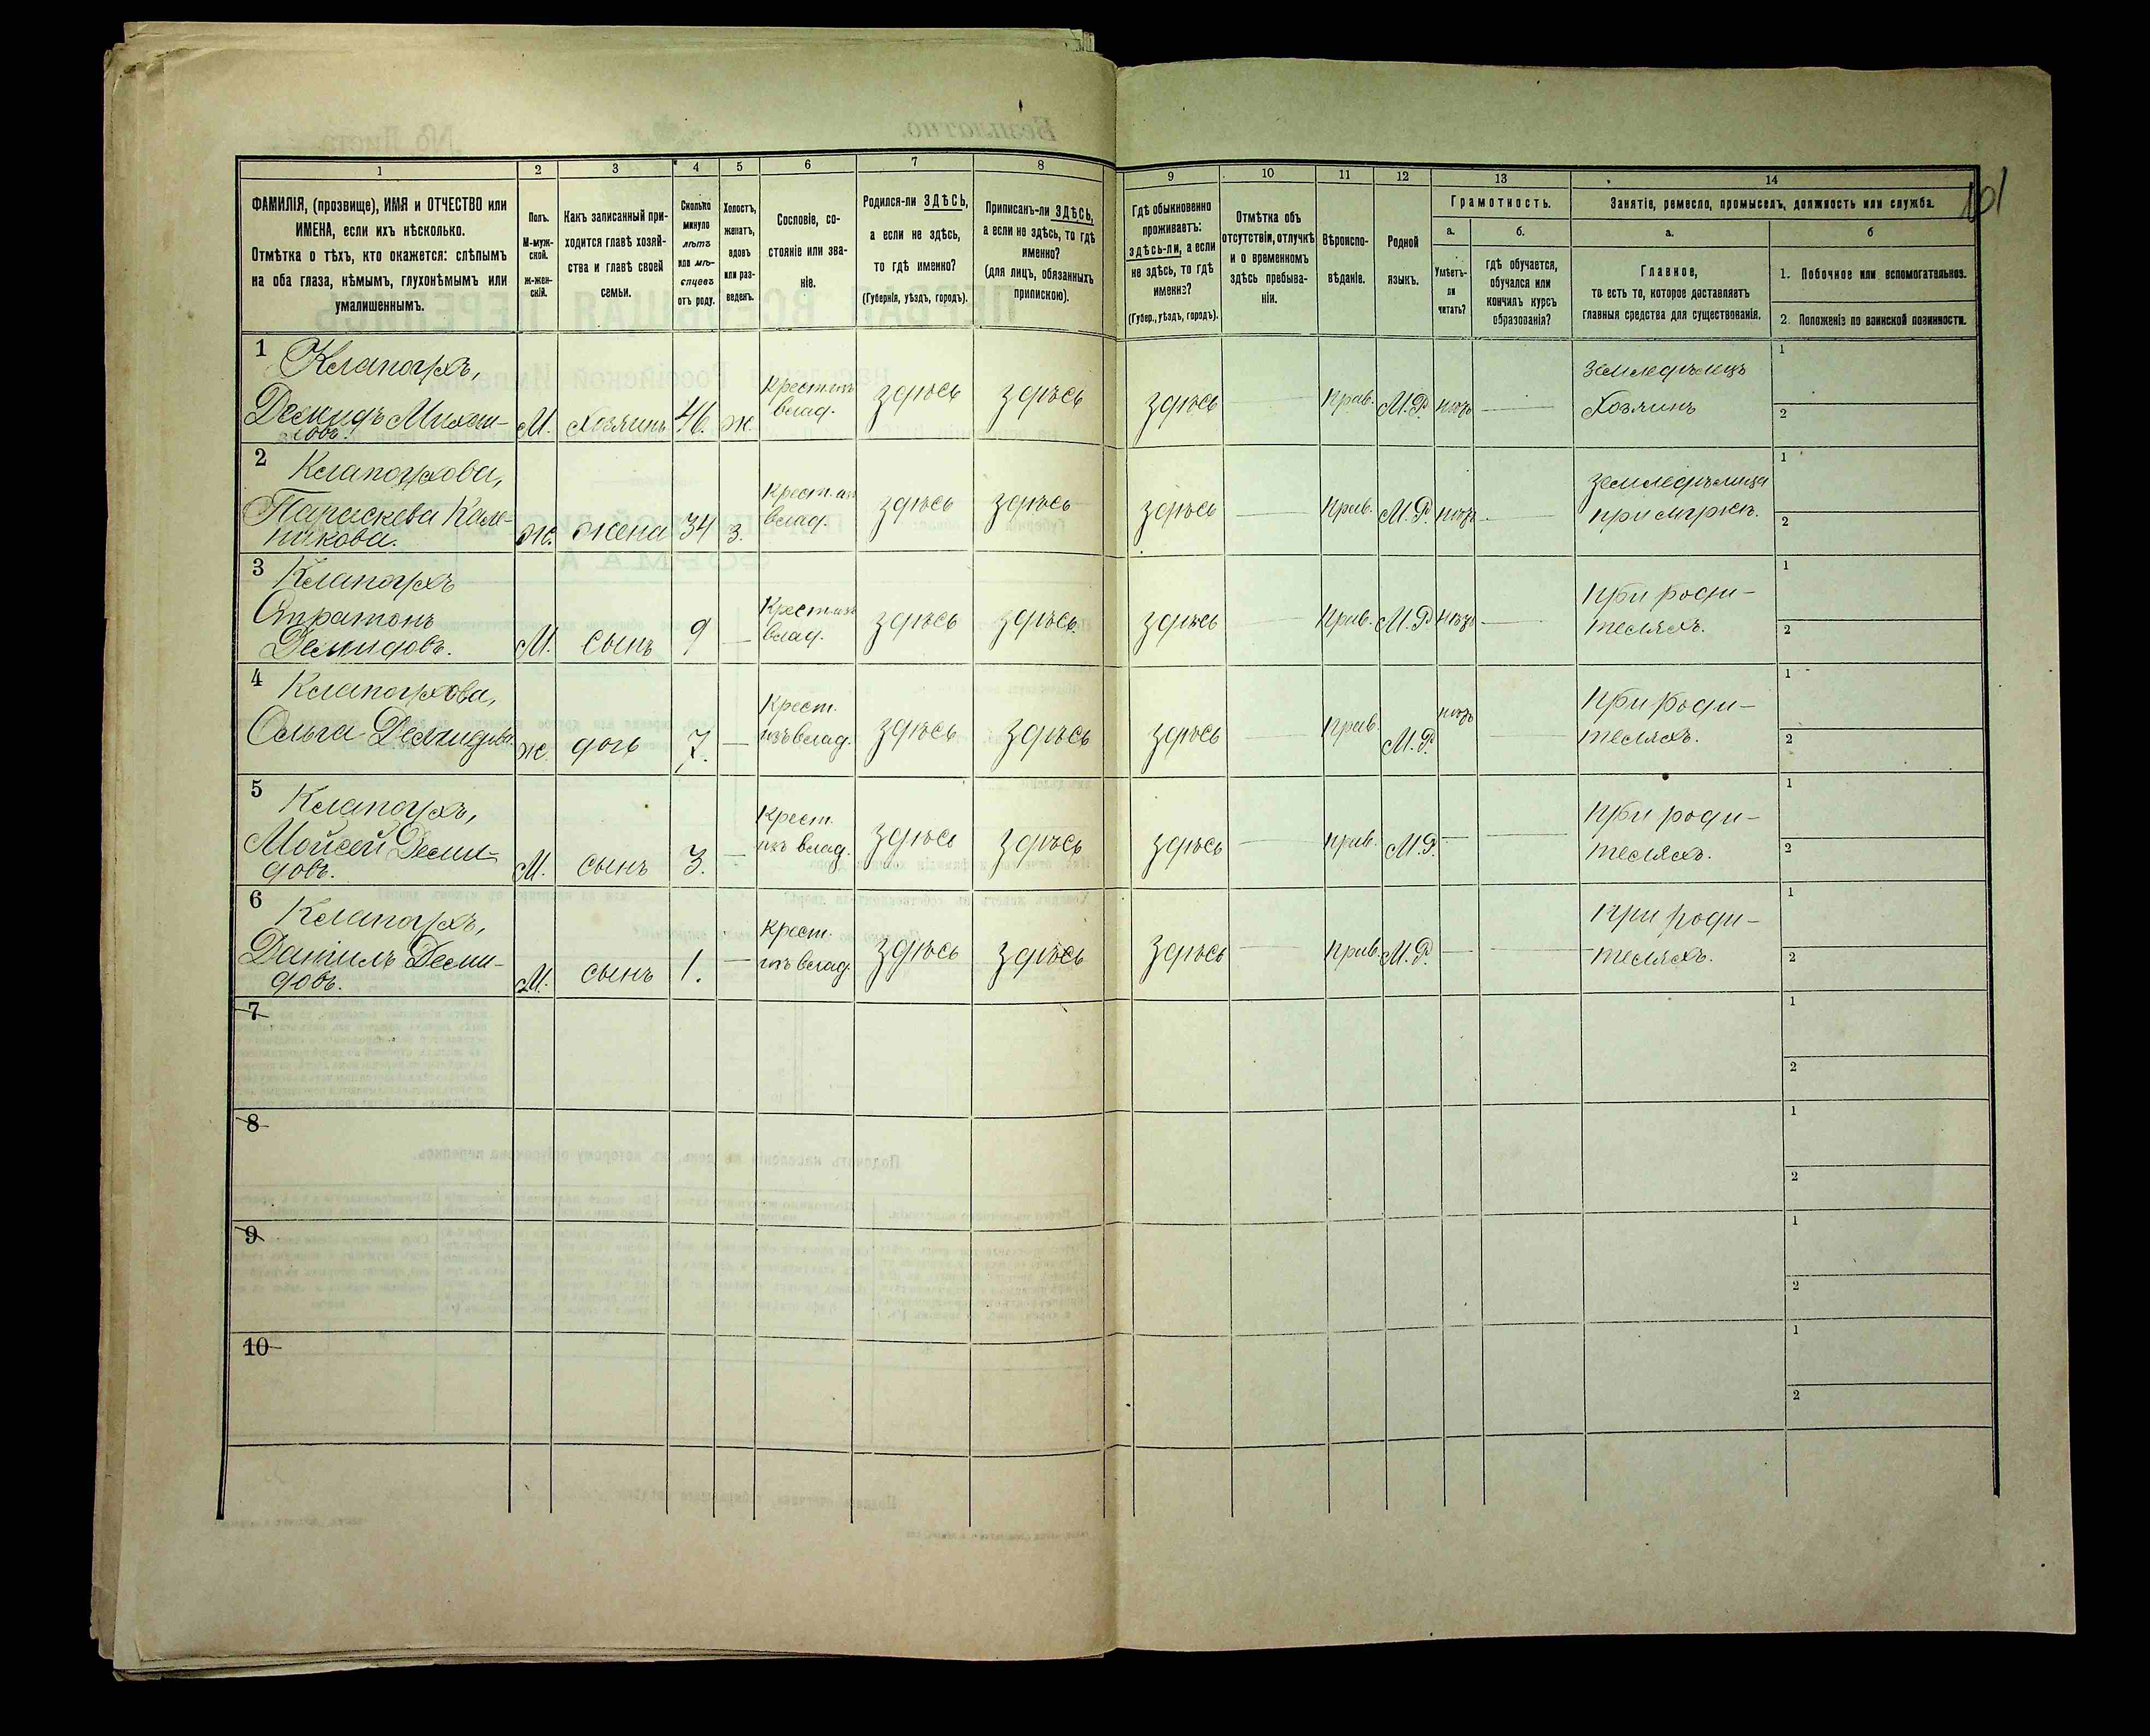 101
1 2 3 4 5 6 7 8 9 10 11 12 13 14
ФАМИЛІЯ, (прозвище), ИМЯ и ОТЧЕСТВО или
ИМЕНА, если ихъ нѣсколько.
Отмѣтка о тѣхъ, кто окажется: слѣпымъ
на оба глаза, нѣмымъ, глухонѣмымъ или
умалишеннымъ.
Полъ.
М-муж-
ской.
ж-жен-
скій.
Какъ записанный при-
ходится главѣ хозяй-
ства и главѣ своей
семьи.
Сколько
минуло
лѣтъ
или мѣ-
сяцевъ
отъ роду.
Холостъ,
женатъ,
вдовъ
или раз-
веденъ.
Сословіе, со-
стояніе или зва-
ніе.
Родился-ли ЗДѢСЬ,
а если не здѣсь,
то гдѣ именно?
(Губернія, уѣздъ, городъ).
Приписанъ-ли ЗДѢСЬ,
а если не здѣсь, то гдѣ
именно?
(для лицъ, обязанныхъ
припискою).
Гдѣ обыкновенно
проживаетъ:
здѣсь-ли, а если
не здѣсь, то гдѣ
именно?
(Губер., уѣздъ, городъ).
Отмѣтка объ
отсутствіи, отлучкѣ
и о временномъ
здѣсь пребыва-
ніи.
Вѣроиспо-
вѣданіе.
Родной
языкъ.
Грамотность.
а.
Умѣетъ-
ли
читать?
б.
гдѣ обучается,
обучался или
кончилъ курсъ
образованія?
Занятіе, ремесло, промыселъ, должность или служба.
а.
Главное,
то есть то, которое доставляетъ
главныя средства для существованія.
б
1. Побочное или вспомогательное.
2. Положеніе по воинской повинности.
1 Клапоухъ,
Демидъ Михай-
ловъ.
М. Хозяинъ 46. ж.
Крест.изъ
влад.
здѣсь здѣсь здѣсь — Прав. М.Р. нѣтъ —
Земледѣлецъ
Хозяинъ
1
2
2 Клапоухова,
Параскева Кале-
никова.
ж. жена 34 з.
Крест.изъ
влад.
здѣсь здѣсь здѣсь — Прав. М.Р. нѣтъ —
Земледѣлица
при мужѣ.
1
2
3 Клапоухъ
Стратонъ
Демидовъ.
М. сынъ 9 —
Крест.изъ
влад.
здѣсь здѣсь здѣсь — Прав. М.Р нѣтъ —
При роди-
теляхъ.
1
2
4 Клапоухова,
Ольга Демидова.
ж. дочь 7. —
Крест.
изъ влад.
здѣсь здѣсь здѣсь — Прав. М.Р. нѣтъ
При роди-
теляхъ.
1
2
5 Клапоухъ,
Мойсей Деми-
довъ.
М. сынъ 3. —
Крест.
изъ влад.
здѣсь здѣсь здѣсь — Прав. М.Р. — —
При роди-
теляхъ.
1
2
6 Клапоухъ,
Даніилъ Деми-
довъ.
М. сынъ 1. —
Крест.
изъ влад.
здѣсь здѣсь здѣсь — Прав. М.Р. — —
При роди-
теляхъ.
1
2
7
1
2
8
1
2
9
1
2
10
1
2